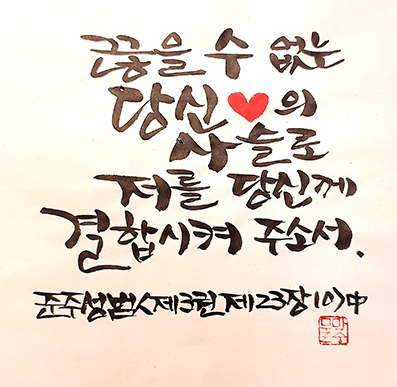 끊을 수 없는
당신❤의
사슬로
저를 당신께
결합시켜 주소서.
준주성범<제3권 제23장10>中